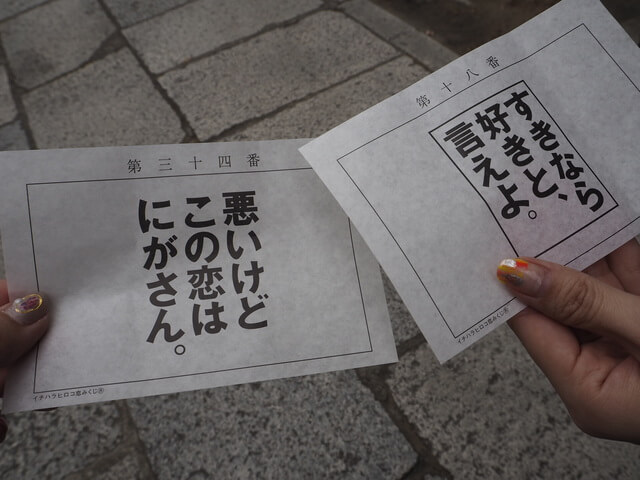 第三十四番
悪いけど
この恋は
にがさん。
イチハラヒロコ恋みくじ®
第十八番
すきなら
好きと、
言えよ。
イチハラヒロコ恋みくじ®